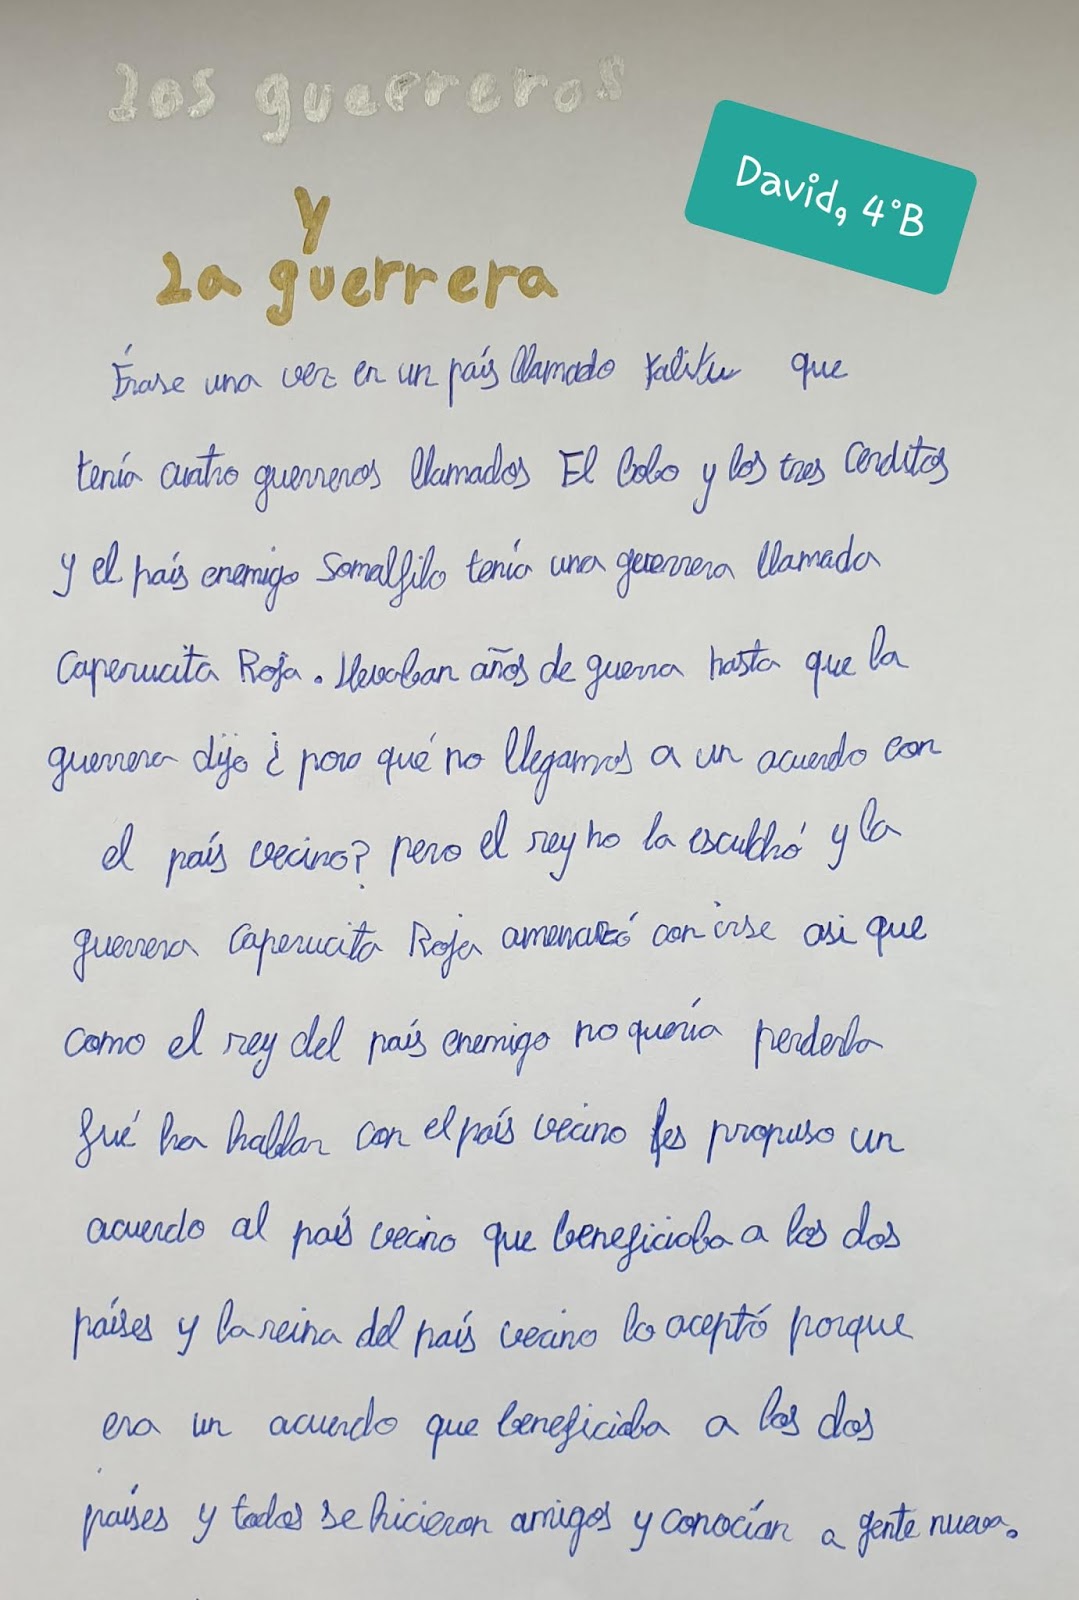 los guerreros
David, 4°B
y
la guerrera
Érase una vez en un país llamado que
tenía cuatro guerreros llamados El lobo y los tres cerditos
y el país enemigo Somalfilo tenía una guerrera llamada
Caperucita Roja. Llevaban años de guerra hasta que la
guerrera dijo ¿ poro qué no llegamos a un acuerdo con
el país vecino? pero el rey no la esculchó y la
guerrera Caperucita Roja amenazó con irse asi que
como el rey del país enemigo no quería perderla
fué ha hablar con el país vecino les propuso un
acuerdo al país vecino que beneficiaba a los dos
países y la reina del país vecino lo aceptó porque
era un acuerdo que beneficiaba a los dos
países y todos se hicieron amigos y conocían a gente nueva.